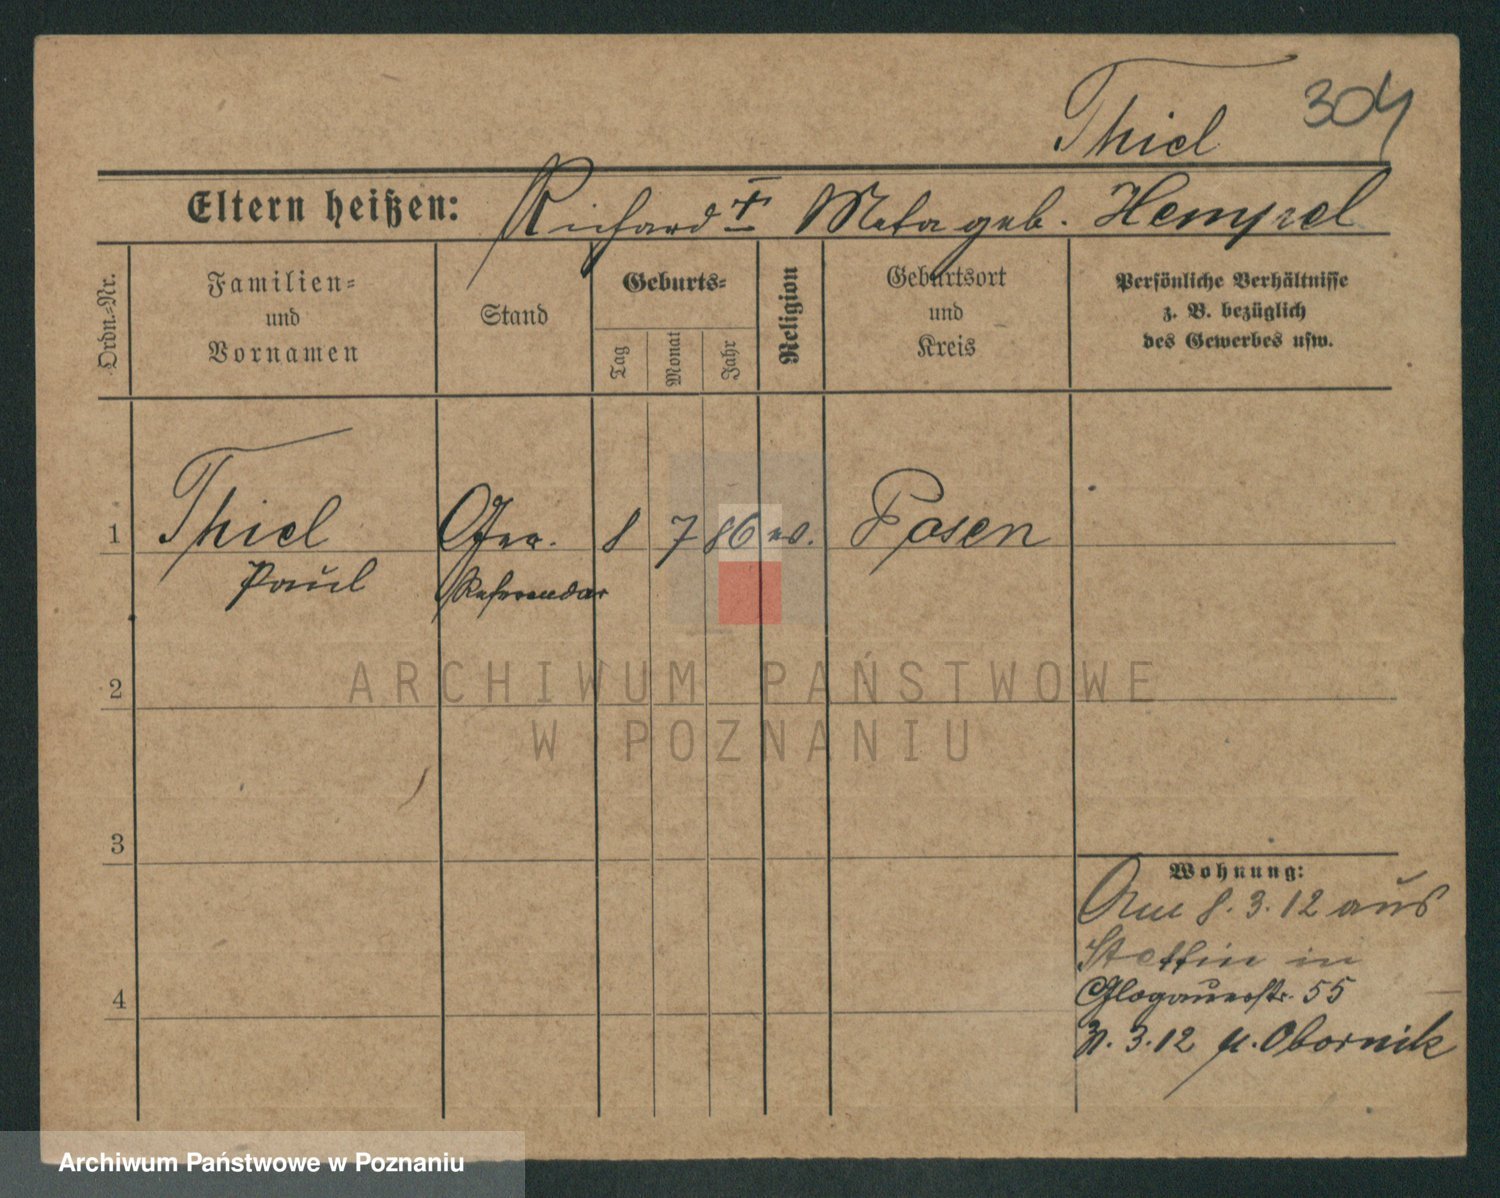 Thiel 304
Eltern heißen: Richard † Meta geb. Hempel
Ordn.-Nr.
Familien-
und
Vornamen
Stand
Geburts-
Tag
Monat
Jahr
Religion
Geburtsort
und
Kreis
Persönliche Verhältnisse
z. B. bezüglich
des Gewerbes usw.
1 Thiel 8 7 86 ev. Posen
Paul Referendar
ARCHIWUM PAŃSTWOWE
2
W POZNANIU
3
Wohnung:
Am 8. 3. 12 aus
Stettin in
4
Glogauerstr. 55
3. 12 Obornik
Archiwum Państwowe w Poznaniu